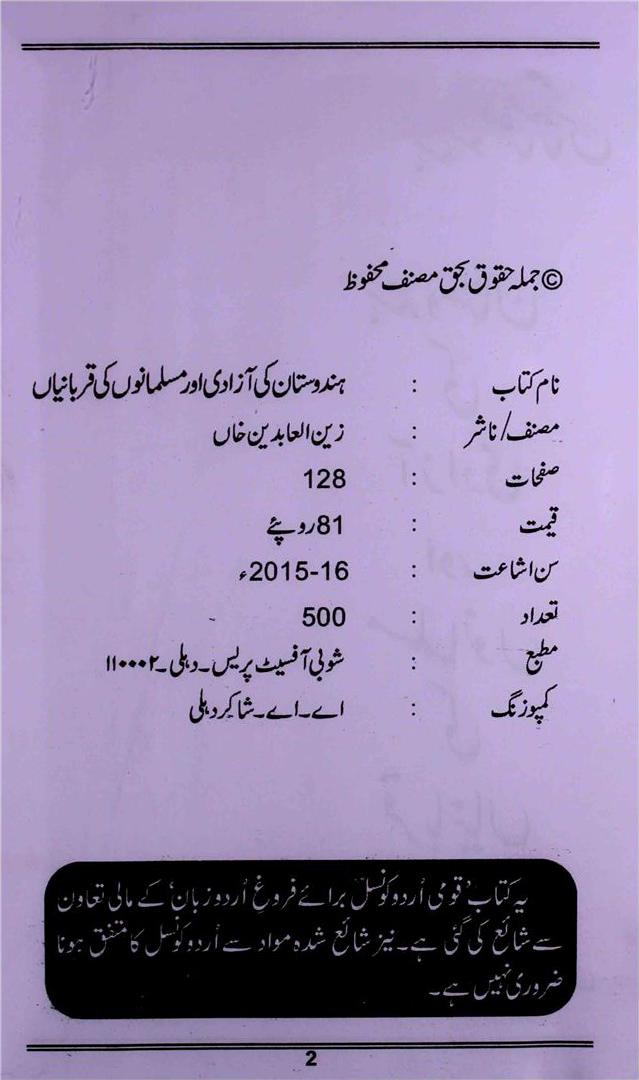 © جملہ حقوق بحق مصنف محفوظ
نام کتاب : ہندوستان کی آزادی اور مسلمانوں کی قربانیاں
مصنف/ناشر : زین العابدین خاں
صفحات : 128
قیمت : 81روپئے
سن اشاعت : 2015-16ء
تعداد : 500
مطبع : شوبی آفسیٹ پریس۔دہلی۔۱۱۰۰۰۲
کمپوزنگ : اے۔اے۔شاکر دہلی
یہ کتاب 'قومی اُردو کونسل برائے فروغِ اُردو زبان' کے مالی تعاون
سے شائع کی گئی ہے۔ نیز شائع شدہ مواد سے اُردو کونسل کا متفق ہونا
ضروری نہیں ہے۔
2